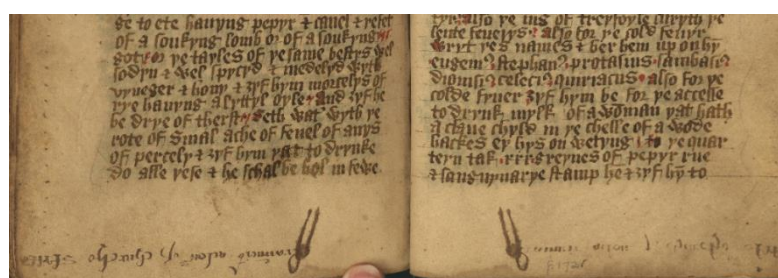 ge to ete hauyng pepyr & canel & relet
of a soukyng lomb or of a soukyng
gott or ye tayles of ye same bestys wel
sodyn & wel spycyd & medelyd wyth
vyneger & hony & ȝyf hym morcelys of
rye hauyng a lyttyl oyle and ȝyf he
be drye of therst seth wat wyth ye
rote of smal ache of fenel of anys
of percely & ȝyf hym yat to drynke
do alle yese & he schal be hol in fewe
tyr also ye ius of treyfoyle curyth ye
lente feuerys also for ye cold feuyr
wryt yes names & ber hem up on hy
eugem stephan protasius sambaci
dionisi celeci quiriacus also for ye
colde fyuer ȝyf hym be for ye accesse
to drynk mylk of a woman yat hath
a chaue chyld in ye chelle of a wode
backes ey hys on wetyng to ye quar
teyn tak xxx greynes of pepyr rue
& sanguynarye stamp he & ȝyf hȳ to